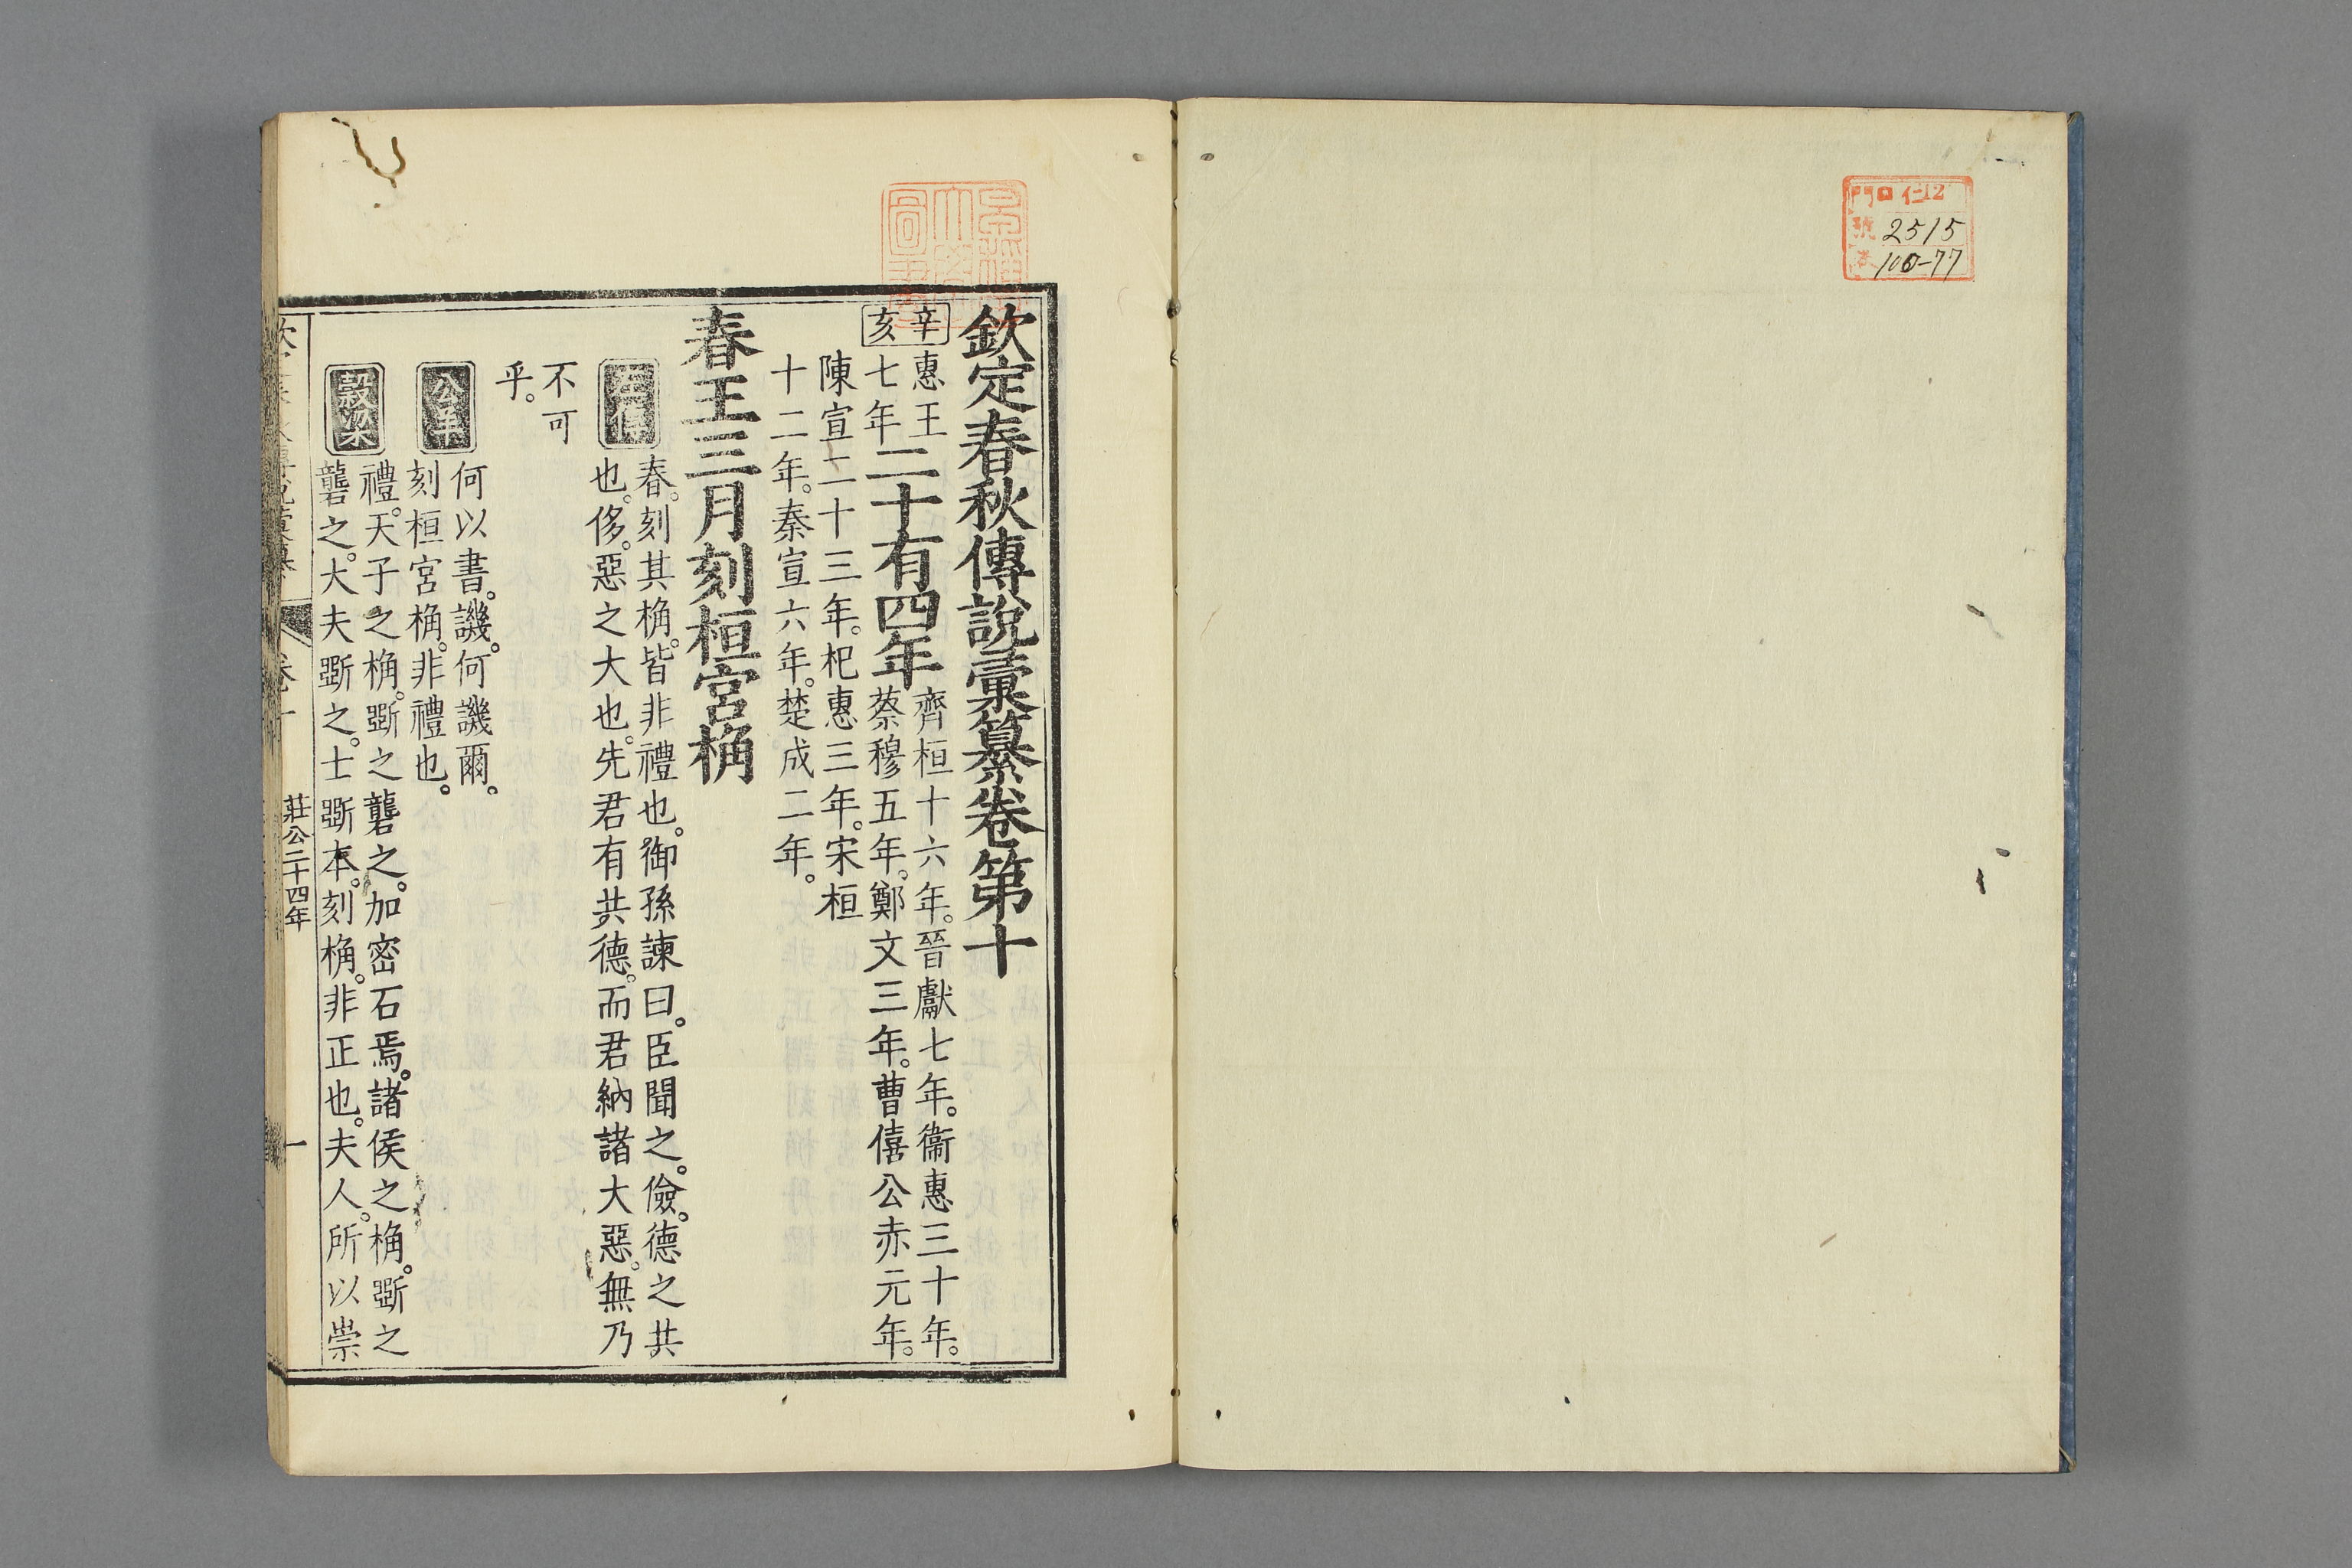 門 口仁12
號 2515
巻 100-77
欽定春秋傳說彙纂卷第十
辛亥
惠王
七年
二十有四年
齊桓十六年。晉獻七年。衞惠三十年。
蔡穆五年。鄭文三年。曹僖公赤元年。
陳宣二十三年。杞惠三年。宋桓
十二年。秦宣六年。楚成二年。
春王三月刻桓宮桷
左傳
春。刻其桷。皆非禮也。御孫諫曰。臣聞之。儉。德之共
也。侈。惡之大也。先君有共德。而君納諸大惡。無乃
不可
乎。
公羊
何以書。譏。何譏爾。
刻桓宮桷。非禮也。
穀梁
禮。天子之桷。斲之礱之。加密石焉。諸侯之桷。斲之
礱之。大夫斲之。士斲本。刻桷。非正也。夫人。所以崇
卷十
莊公二十四年
一